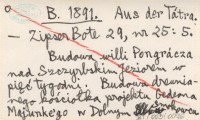 B. 1891. Aus der Tátra.
— Zipser Bote 29, nr 25: 5.
Budowa willi Pongrácza
nad Szczyrbskim Jeziorem w
pięć tygodni. Budowa drewnia-
nego kościółka projektu Gedeona
Majunkego w Dolnym